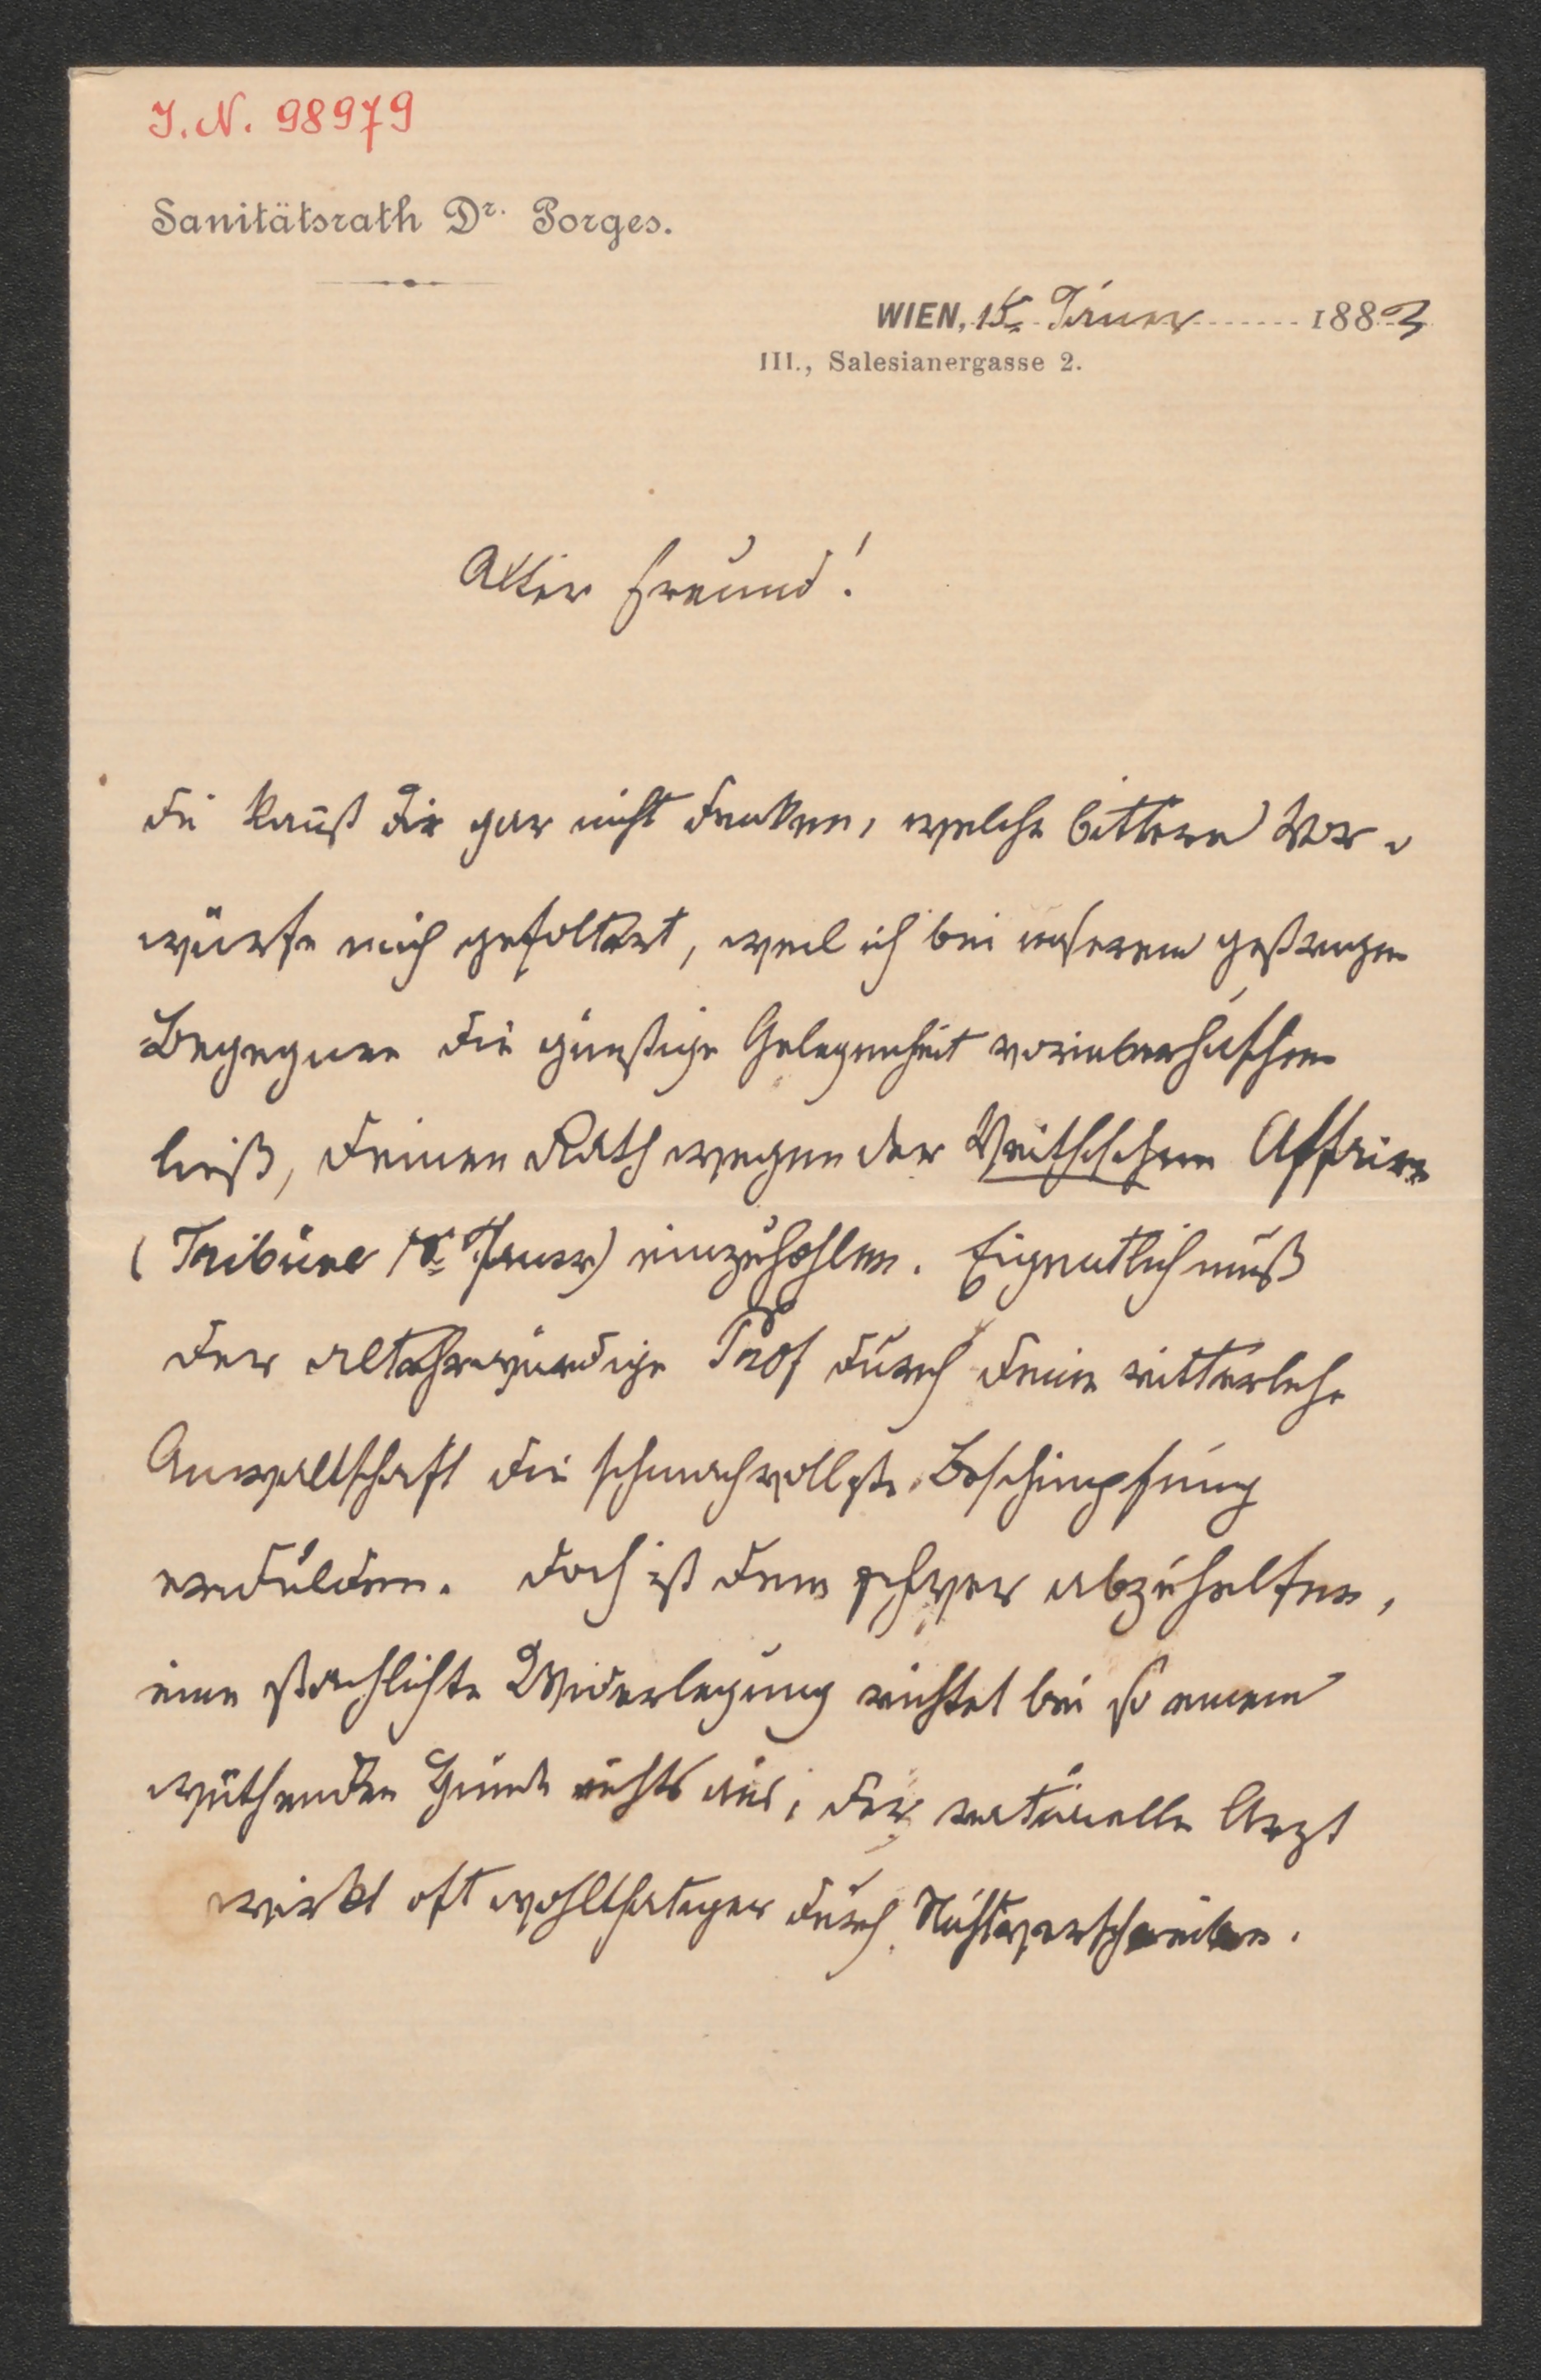 J. N. 98979
Sanitätsrath Dr. Porges.
WIEN, 15. Jäner 1883
III., Salesianergasse 2.
Alter Freund!
Du kanst Dir gar nicht denken, welche bittere Vor-
würfe mich gefoltert, weil ich bei unserem gestrigen
Begegnen die günstige Gelegenheit vorüberhuschen
ließ, Deinen Rath wegen der Veithschen Affaire
(Tribüne Jänner) einzuhohlen. Eigentlich muß
der altehrwürdige durch Deine ritterliche
Anwaltschaft die schmachvollste Beschimpfung
erdulden. Doch ist dem schwer abzuhelfen,
eine stachlichte Widerlegung richtet bei so einem
wüthenden Hunde nichts aus, der rationelle Arzt
wirkt oft wohlthätiger durch Nichtverschreiben.